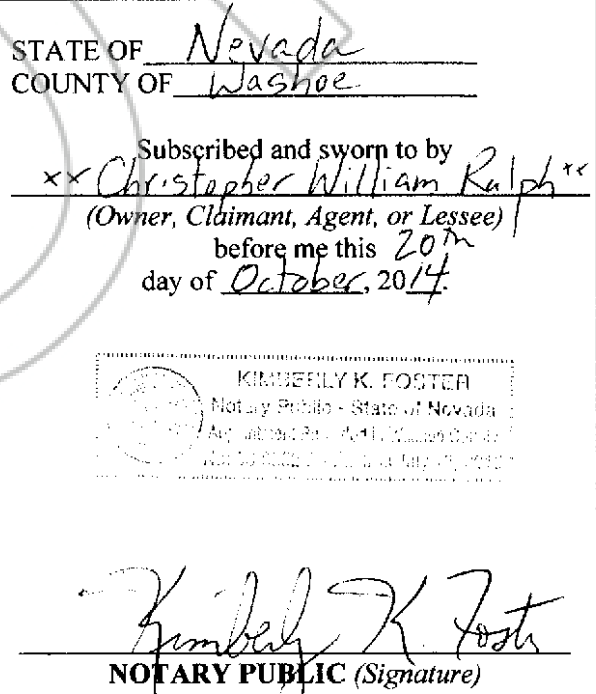 STATE OF Nevada
COUNTY OF Washoe
Subscribed and sworn to by
xx Christopher William Ralph xx
(Owner, Claimant, Agent, or Lessee)
before me this 20th
day of October, 2014.
KIMBERLY K. FOSTER
Notary Public - State of Nevada
Kimberly K Foster
NOTARY PUBLIC (Signature)